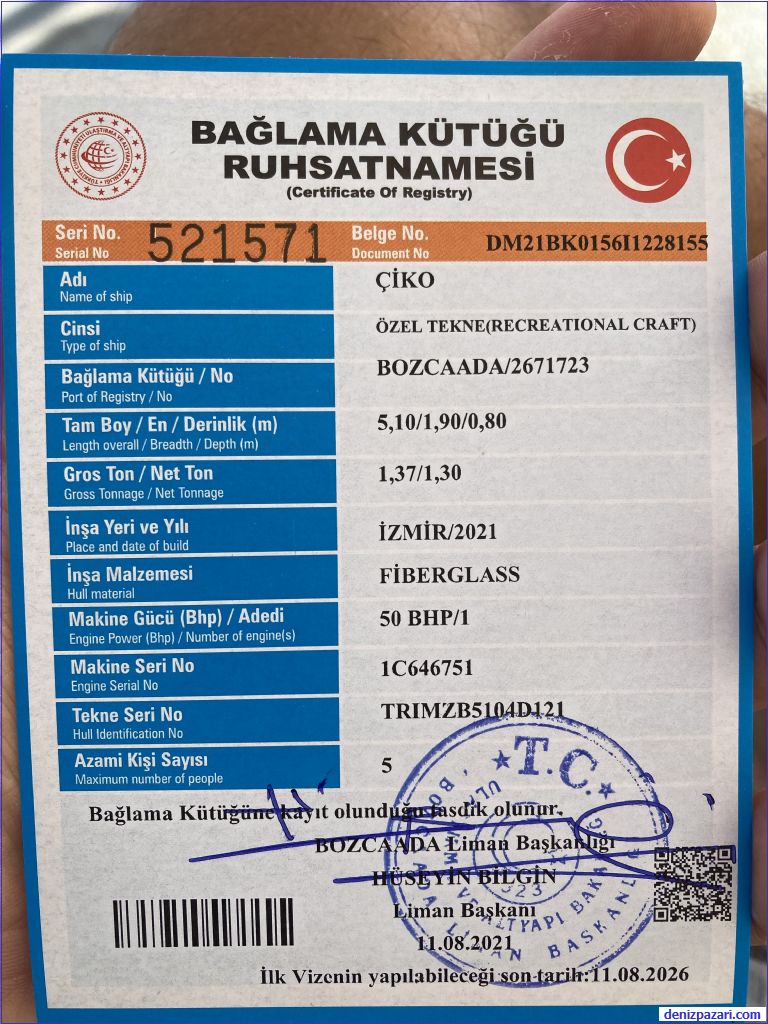 BAĞLAMA KÜTÜĞÜ
RUHSATNAMESİ
(Certificate Of Registry)
Seri No. 521571 Belge No. DM21BK0156I1228155
Serial No Document No
Adı ÇİKO
Name of ship
Cinsi ÖZEL TEKNE(RECREATIONAL CRAFT)
Type of ship
Bağlama Kütüğü / No BOZCAADA/2671723
Port of Registry / No
Tam Boy / En / Derinlik (m) 5,10/1,90/0,80
Length overall / Breadth / Depth (m)
Gros Ton / Net Ton 1,37/1,30
Gross Tonnage / Net Tonnage
İnşa Yeri ve Yılı İZMİR/2021
Place and date of build
İnşa Malzemesi FİBERGLASS
Hull material
Makine Gücü (Bhp) / Adedi 50 BHP/1
Engine Power (Bhp) / Number of engine(s)
Makine Seri No 1C646751
Engine Serial No
Tekne Seri No TRIMZB5104D121
Hull Identification No
Azami Kişi Sayısı 5
Maximum number of people
Bağlama Kütüğüne kayıt olunduğu tasdik olunur.
BOZCAADA Liman Başkanlığı
HÜSEYİN BİLGİN
Liman Başkanı
11.08.2021
İlk Vizenin yapılabileceği son tarih:11.08.2026
T.C.
denizpazari.com